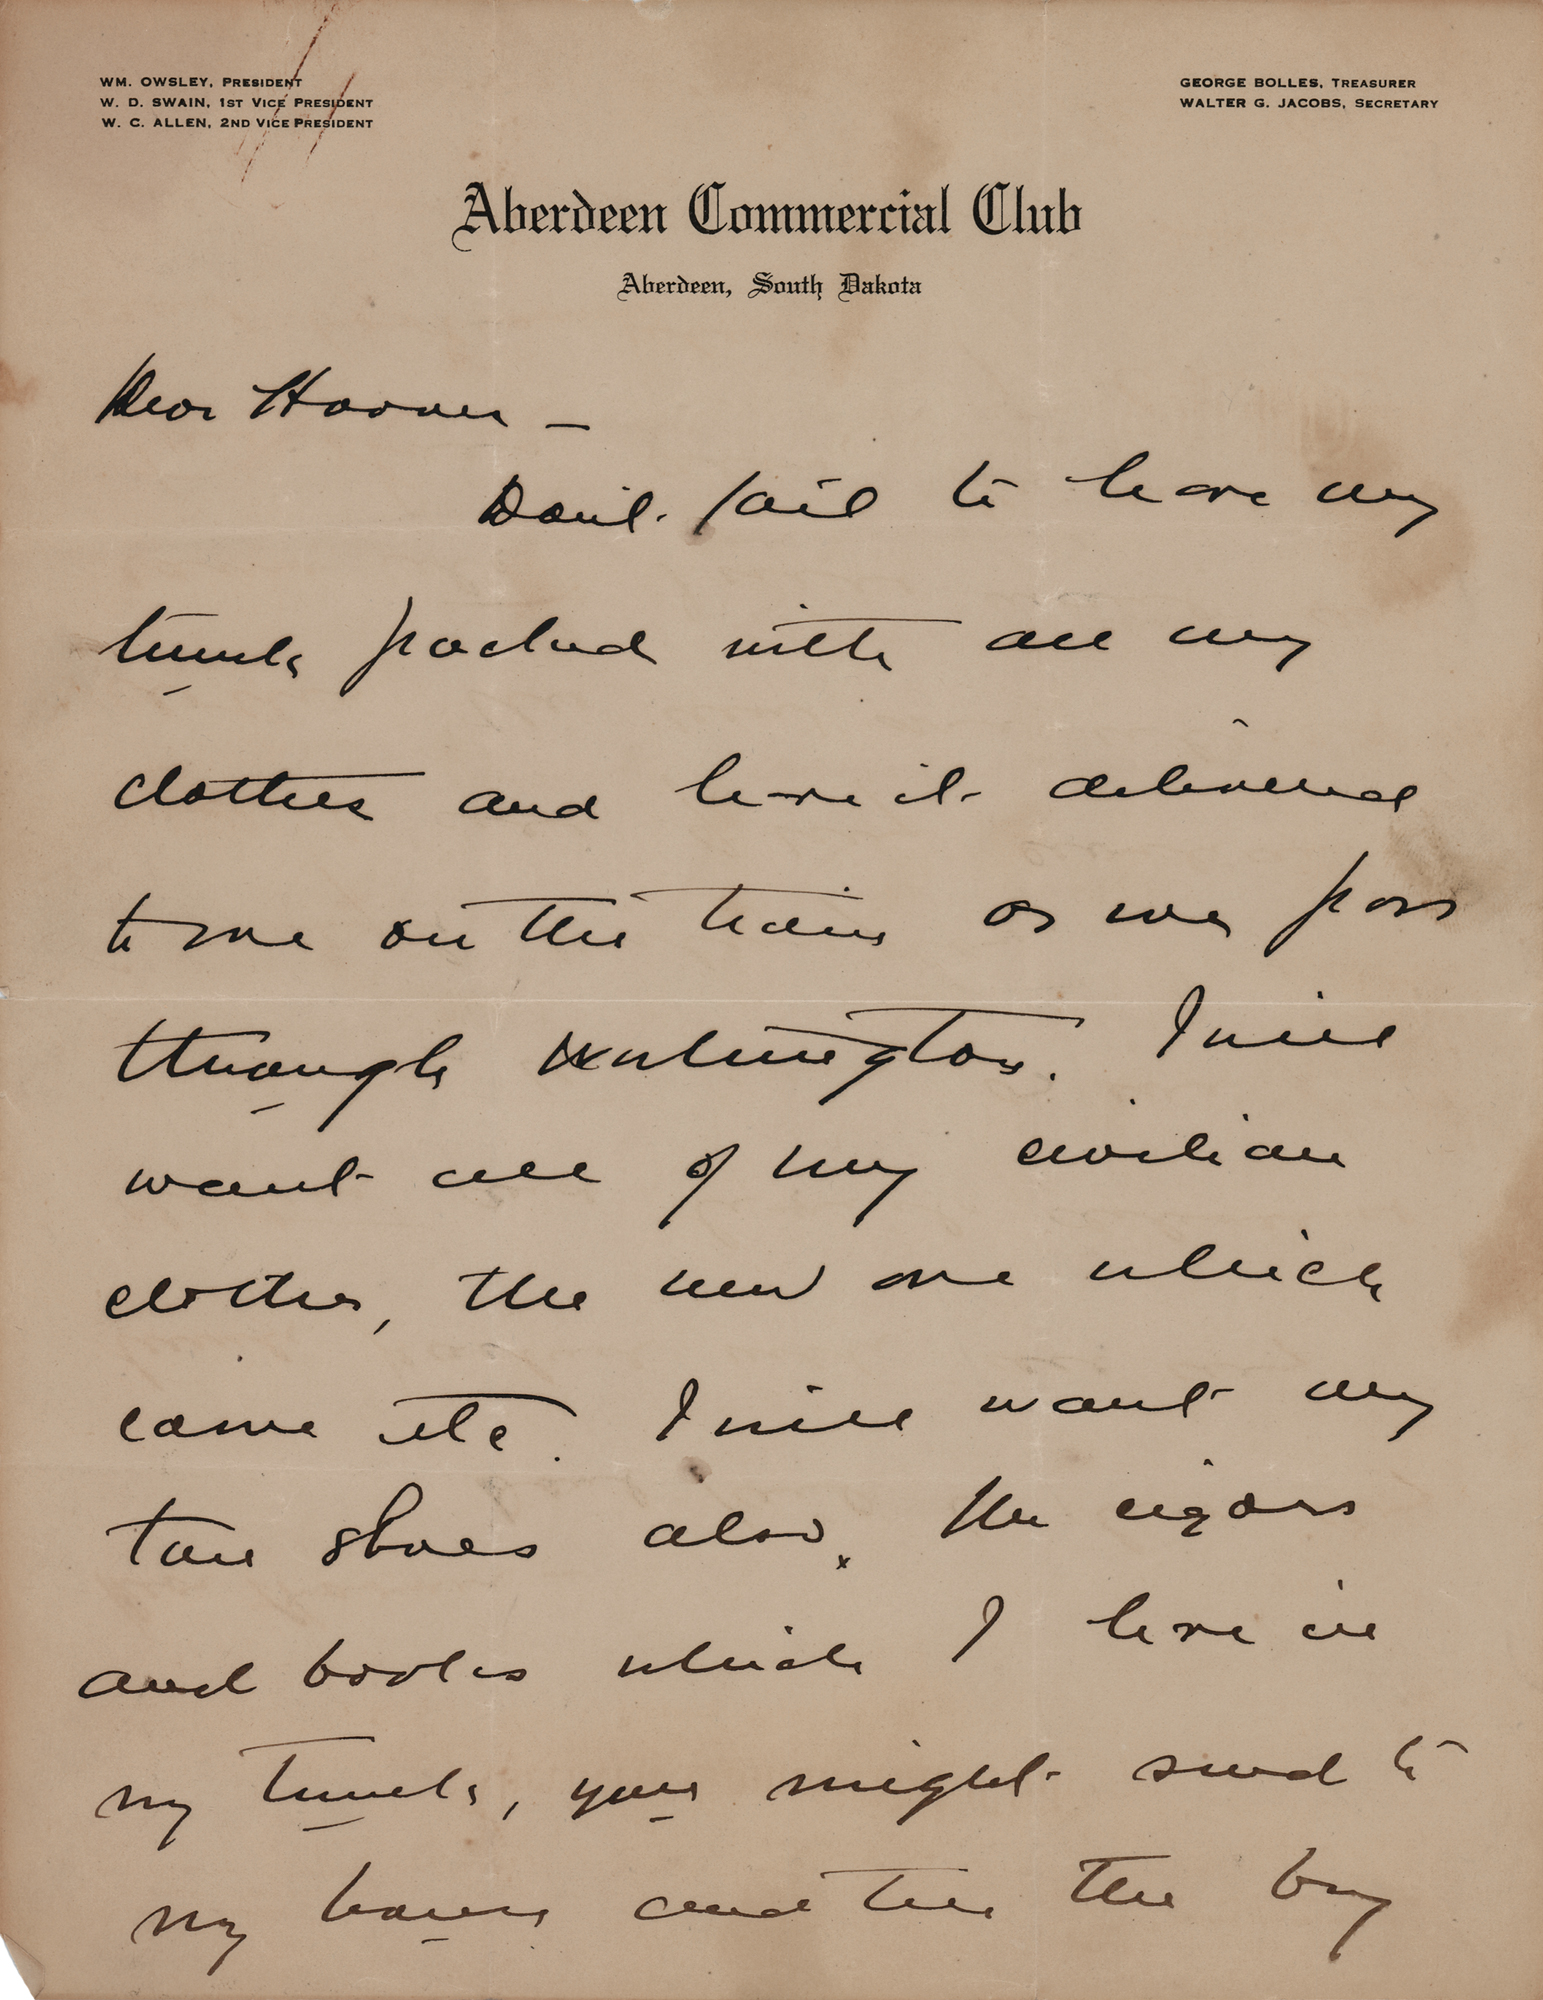 WM. OWSLEY, PRESIDENT
W. D. SWAIN, 1ST VICE PRESIDENT
W. C. ALLEN, 2ND VICE PRESIDENT
GEORGE BOLLES, TREASURER
WALTER G. JACOBS, SECRETARY
Aberdeen Commercial Club
Aberdeen, South Dakota
Dear Hoover –
Don't fail to have my
trunk packed with all my
clothes and have it delivered
to me on the train as we pass
through Wilmington. I will
want all of my civilian
clothes, the new one which
came etc. I will want my
tan shoes also. The cigars
and books which I have in
my trunk, you might send to
my home and tell the boy